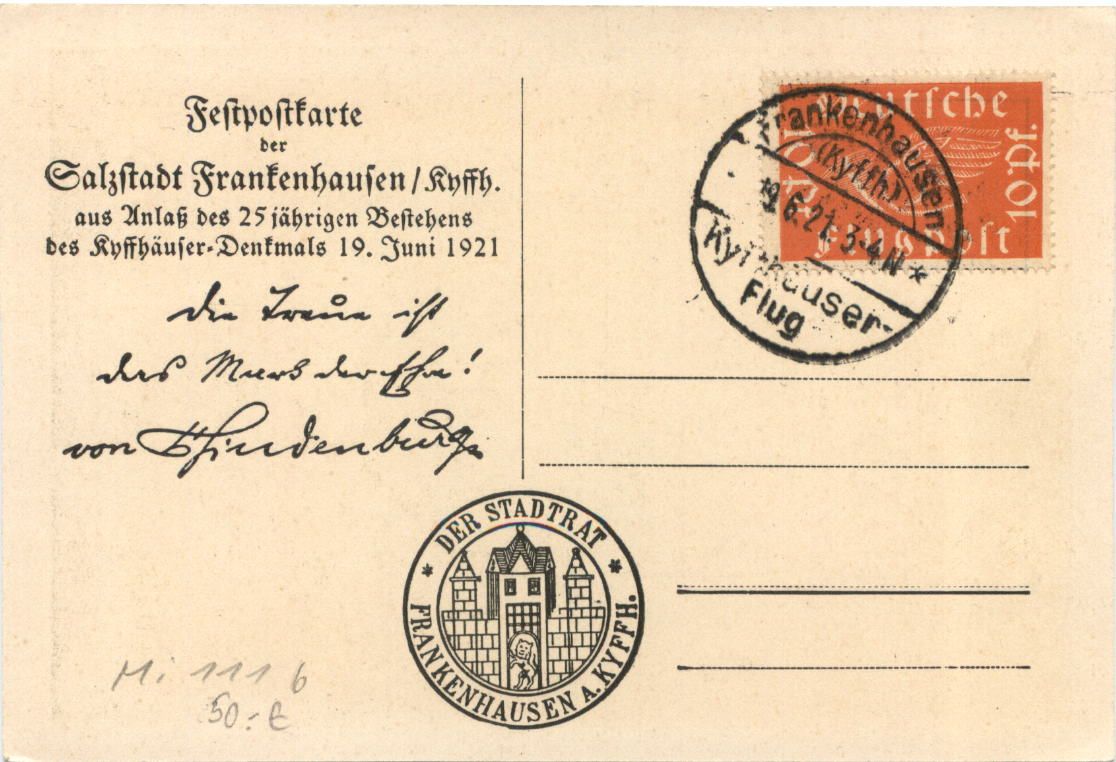 Festpostkarte
der
Salzstadt Frankenhausen/Kyffh.
aus Anlaß des 25 jährigen Bestehens
des Kyffhäuser-Denkmals 19. Juni 1921
die Treue ist
das Mark der Ehre!
von Hindenburg
Deutsche
10 Pf.
10 Pf.
Flugpost
Frankenhausen
(Kyffh.)
19.6.21. 3-4 N *
Kyffhäuser-
Flug
* DER STADTRAT *
FRANKENHAUSEN A. KYFFH.
Mi 111 b
50.- €